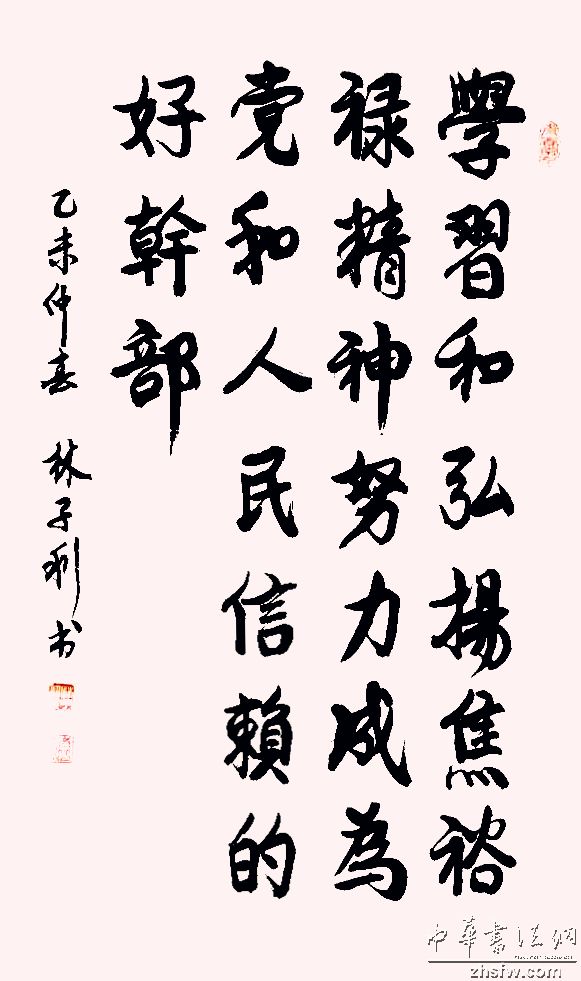 學習和弘揚焦裕
禄精神努力成為
党和人民信賴的
好幹部
乙未仲春 林子利书
中华書法網
zhsfw.com